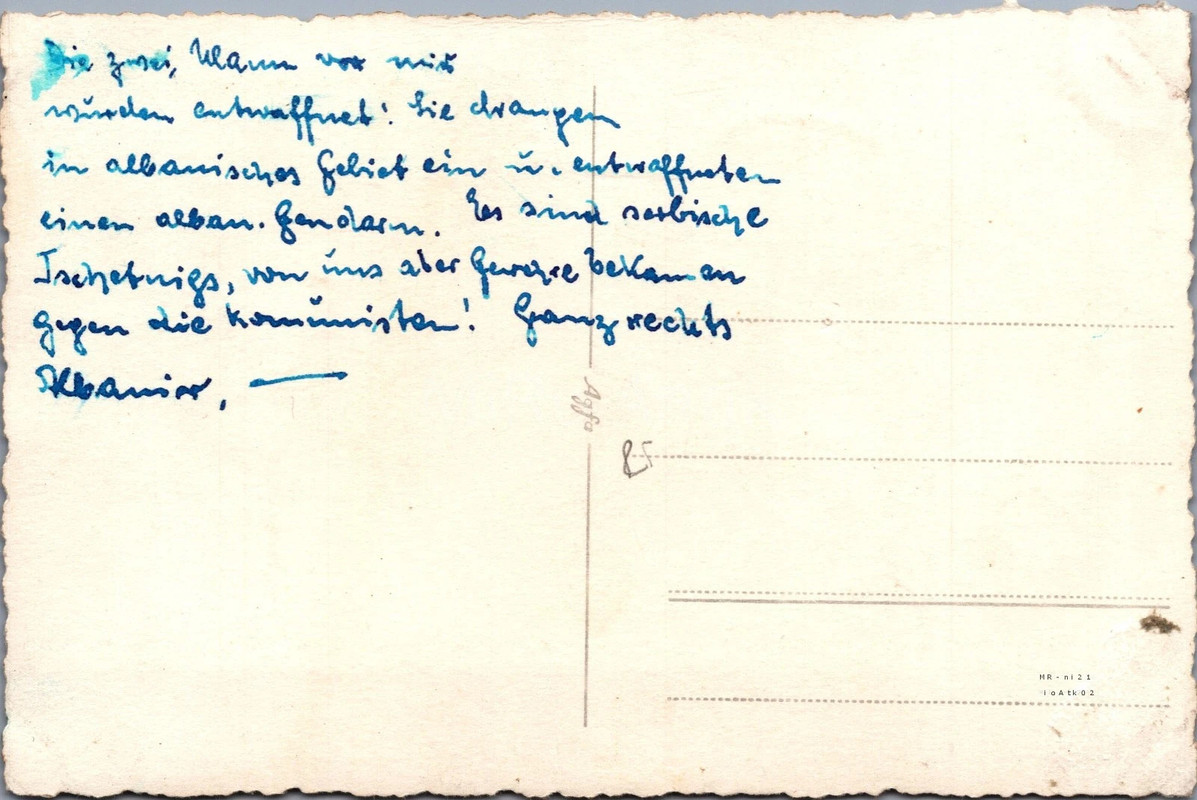 Die zwei, Mann vor mir
wurden entwaffnet! Sie drangen
in albanisches Gebiet ein u. entwaffneten
einen alban. Gendarm. Es sind serbische
Tschetnigs, von uns aber Gewehre bekamen
gegen die Kommunisten! Ganz rechts
Albanier,
Agfa
85
HR-ni21
ioAtk02